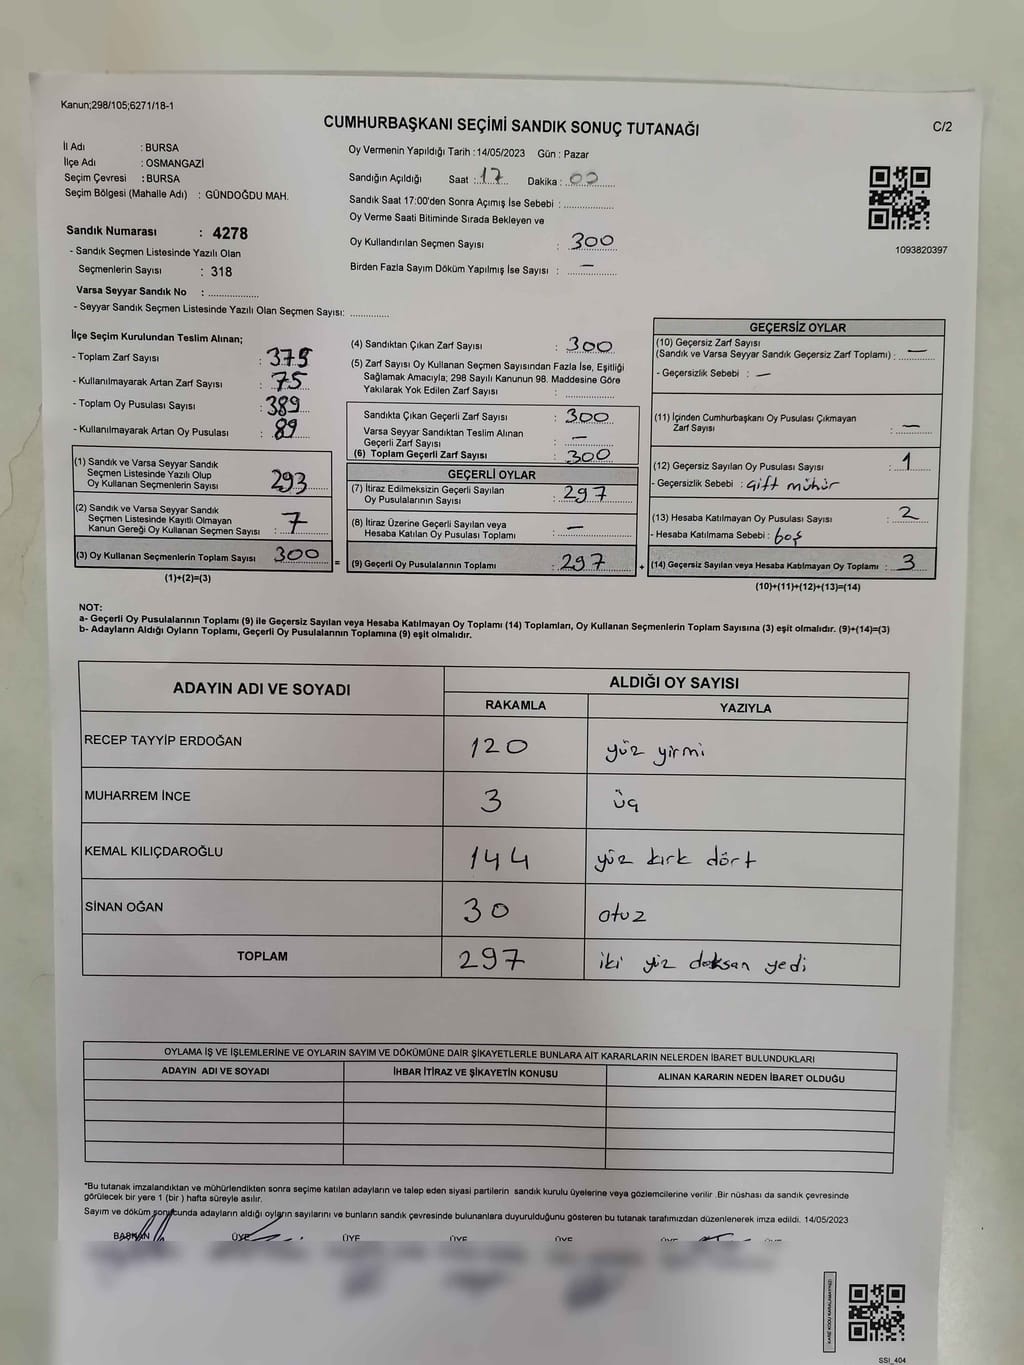 Kanun;298/105;6271/18-1
CUMHURBAŞKANI SEÇİMİ SANDIK SONUÇ TUTANAĞI
C/2
İl Adı : BURSA
İlçe Adı : OSMANGAZİ
Seçim Çevresi : BURSA
Seçim Bölgesi (Mahalle Adı) : GÜNDOĞDU MAH.
Sandık Numarası : 4278
- Sandık Seçmen Listesinde Yazılı Olan
Seçmenlerin Sayısı : 318
Varsa Seyyar Sandık No : ..................
- Seyyar Sandık Seçmen Listesinde Yazılı Olan Seçmen Sayısı: ..............
Oy Vermenin Yapıldığı Tarih : 14/05/2023 Gün : Pazar
Sandığın Açıldığı Saat : 17 Dakika : 00
Sandık Saat 17:00'den Sonra Açımış İse Sebebi : ..................
Oy Verme Saati Bitiminde Sırada Bekleyen ve
Oy Kullandırılan Seçmen Sayısı : 300
Birden Fazla Sayım Döküm Yapılmış İse Sayısı : —
1093820397
İlçe Seçim Kurulundan Teslim Alınan;
- Toplam Zarf Sayısı : 375
- Kullanılmayarak Artan Zarf Sayısı : 75
- Toplam Oy Pusulası Sayısı : 389
- Kullanılmayarak Artan Oy Pusulası : 89
(1) Sandık ve Varsa Seyyar Sandık
Seçmen Listesinde Yazılı Olup
Oy Kullanan Seçmenlerin Sayısı : 293
(2) Sandık ve Varsa Seyyar Sandık
Seçmen Listesinde Kayıtlı Olmayan
Kanun Gereği Oy Kullanan Seçmen Sayısı : 7
(3) Oy Kullanan Seçmenlerin Toplam Sayısı 300
(1)+(2)=(3)
(4) Sandıktan Çıkan Zarf Sayısı : 300
(5) Zarf Sayısı Oy Kullanan Seçmen Sayısından Fazla İse, Eşitliği
Sağlamak Amacıyla; 298 Sayılı Kanunun 98. Maddesine Göre
Yakılarak Yok Edilen Zarf Sayısı : ..................
Sandıkta Çıkan Geçerli Zarf Sayısı : 300
Varsa Seyyar Sandıktan Teslim Alınan
Geçerli Zarf Sayısı : —
(6) Toplam Geçerli Zarf Sayısı : 300
GEÇERLİ OYLAR
(7) İtiraz Edilmeksizin Geçerli Sayılan
Oy Pusulalarının Sayısı : 297
(8) İtiraz Üzerine Geçerli Sayılan veya
Hesaba Katılan Oy Pusulası Toplamı : —
= (9) Geçerli Oy Pusulalarının Toplamı : 297
GEÇERSİZ OYLAR
(10) Geçersiz Zarf Sayısı
(Sandık ve Varsa Seyyar Sandık Geçersiz Zarf Toplamı) : —
- Geçersizlik Sebebi : —
(11) İçinden Cumhurbaşkanı Oy Pusulası Çıkmayan
Zarf Sayısı : —
(12) Geçersiz Sayılan Oy Pusulası Sayısı : 1
- Geçersizlik Sebebi : Çift mühür
(13) Hesaba Katılmayan Oy Pusulası Sayısı : 2
- Hesaba Katılmama Sebebi : boş
+ (14) Geçersiz Sayılan veya Hesaba Katılmayan Oy Toplamı : 3
(10)+(11)+(12)+(13)=(14)
NOT:
a- Geçerli Oy Pusulalarının Toplamı (9) ile Geçersiz Sayılan veya Hesaba Katılmayan Oy Toplamı (14) Toplamları, Oy Kullanan Seçmenlerin Toplam Sayısına (3) eşit olmalıdır. (9)+(14)=(3)
b- Adayların Aldığı Oyların Toplamı, Geçerli Oy Pusulalarının Toplamına (9) eşit olmalıdır.
ADAYIN ADI VE SOYADI
ALDIĞI OY SAYISI
RAKAMLA YAZIYLA
RECEP TAYYİP ERDOĞAN 120 yüz yirmi
MUHARREM İNCE 3 üç
KEMAL KILIÇDAROĞLU 144 yüz kırk dört
SİNAN OĞAN 30 otuz
TOPLAM 297 iki yüz doksan yedi
OYLAMA İŞ VE İŞLEMLERİNE VE OYLARIN SAYIM VE DÖKÜMÜNE DAİR ŞİKAYETLERLE BUNLARA AİT KARARLARIN NELERDEN İBARET BULUNDUKLARI
ADAYIN ADI VE SOYADI İHBAR İTİRAZ VE ŞİKAYETİN KONUSU ALINAN KARARIN NEDEN İBARET OLDUĞU
*Bu tutanak imzalandıktan ve mühürlendikten sonra seçime katılan adayların ve talep eden siyasi partilerin sandık kurulu üyelerine veya gözlemcilerine verilir .Bir nüshası da sandık çevresinde
görülecek bir yere 1 (bir ) hafta süreyle asılır.
Sayım ve döküm sonucunda adayların aldığı oyların sayılarını ve bunların sandık çevresinde bulunanlara duyurulduğunu gösteren bu tutanak tarafımızdan düzenlenerek imza edildi. 14/05/2023
BAŞKAN ÜYE ÜYE ÜYE ÜYE ÜYE ÜYE
SSİ_404